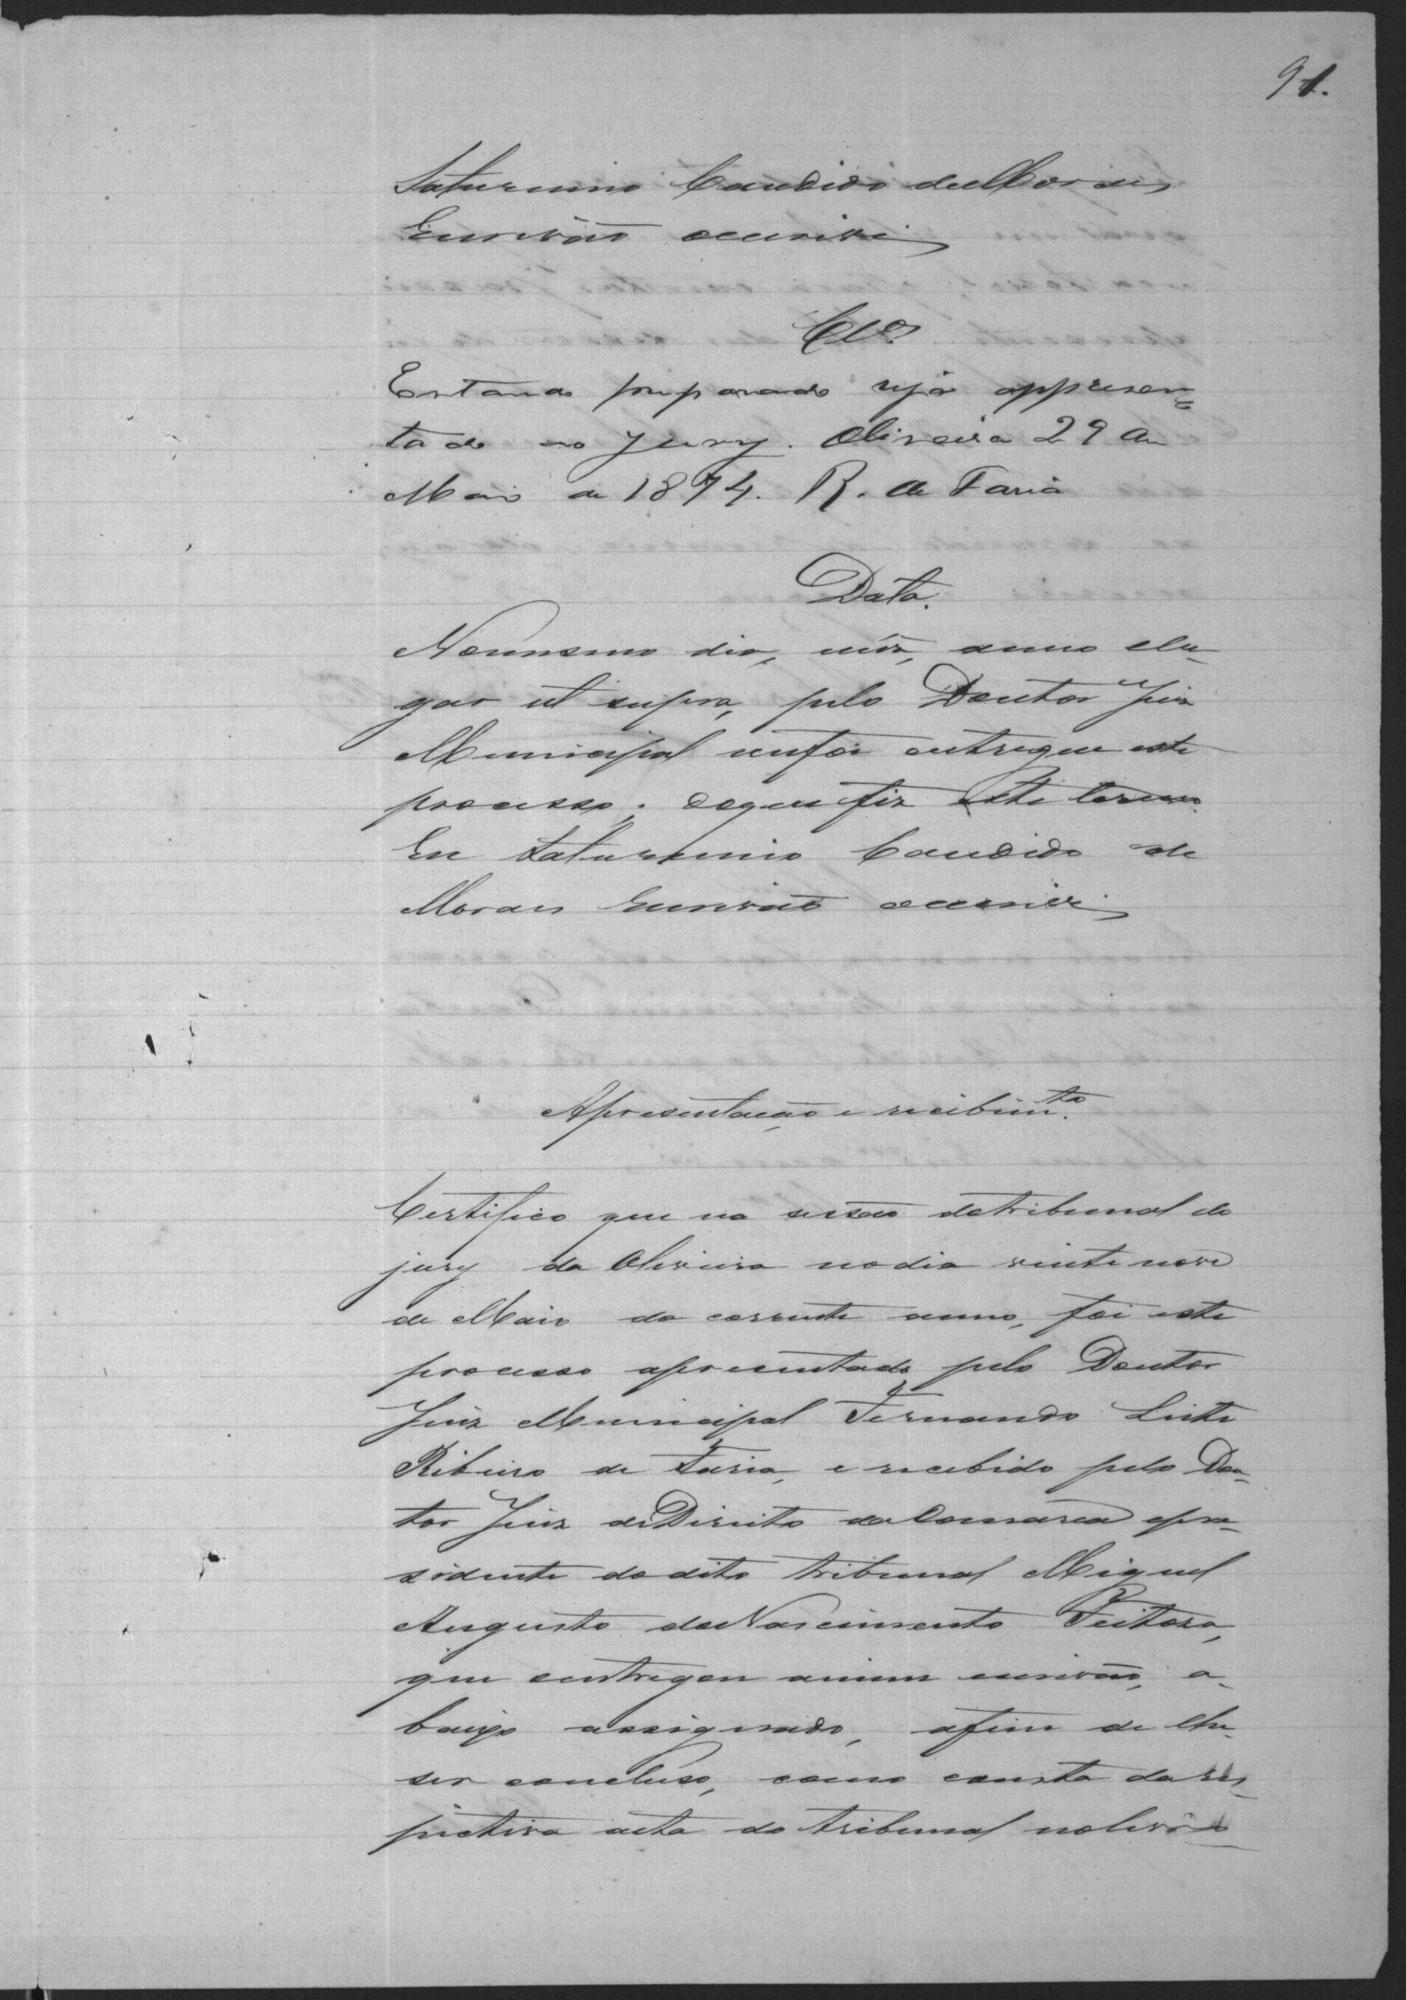 91.
Saturnino Candido de Moraes
Escrivão o escrivi
Clo.
Estando preparado seja appresen=
tado ao Jury. Oliveira 29 de
Maio de 1874. R. de Faria
Data.
No mesmo dia, mês, anno e lu-
gar ut supra, pelo Doutor Juiz
Municipal me foi entregue este
processo; do que fiz este termo.
Eu Saturnino Candido de
Moraes Escrivão o escrivi
Apresentação e recebim.to
Certifico que na sessão do tribunal do
jury da Oliveira no dia vinte nove
de Maio do corrente anno, foi este
processo apresentado pelo Doutor
Juiz Municipal Fernando Leite
Ribeiro de Faria, e recebido pelo Dou-
tor Juiz de Direito da Comarca e pre-
sidente do dito tribunal Miguel
Augusto do Nascimento Feitosa,
que entregou a mim escrivão, a-
baixo assignado, afim de lhe
ser concluso, como consta da res-
pectiva acta do tribunal no livro